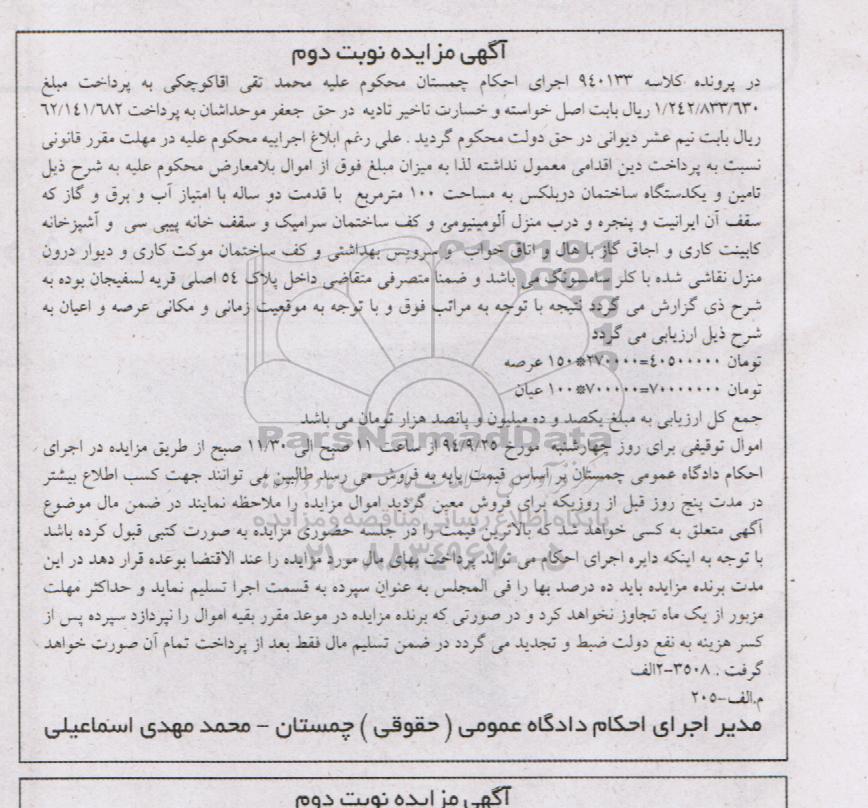 آگهی مزایده نوبت دوم
در پرونده کلاسه ۹۴۰۱۳۳ اجرای احکام چمستان محکوم علیه محمد تقی اقاکوچکی به پرداخت مبلغ
۱/۲۴۲/۸۳۳/۶۳۰ ریال بابت اصل خواسته و خسارت تاخیر تادیه در حق جعفر موحداشان به پرداخت ۶۲/۱۴۱/۶۸۲
ریال بابت نیم عشر دیوانی در حق دولت محکوم گردید . علی رغم ابلاغ اجراییه محکوم علیه در مهلت مقرر قانونی
نسبت به پرداخت دین اقدامی معمول نداشته لذا به میزان مبلغ فوق از اموال بلامعارض محکوم علیه به شرح ذیل
تامین و یکدستگاه ساختمان دربلکس به مساحت ۱۰۰ مترمربع با قدمت دو ساله با امتیاز آب و برق و گاز که
سقف آن ایرانیت و پنجره و درب منزل آلومینیومی و کف ساختمان سرامیک و سقف خانه پیپی سی و آشپزخانه
کابینت کاری و اجاق گاز با هال و اتاق خواب و سرویس بهداشتی و کف ساختمان موکت کاری و دیوار درون
منزل نقاشی شده با کلر سامسونگ می باشد و ضمنا متصرفی متقاضی داخل پلاک ۵۴ اصلی قریه لسفیجان بوده به
شرح ذی گزارش می گردد نتیجه با توجه به مراتب فوق و با توجه به موقعیت زمانی و مکانی عرصه و اعیان به
شرح ذیل ارزیابی می گردد
تومان ۴۰۵۰۰۰۰۰=۲۷۰۰۰۰*۱۵۰ عرصه
تومان ۷۰۰۰۰۰۰۰=۷۰۰۰۰۰*۱۰۰ عیان
جمع کل ارزیابی به مبلغ یکصد و ده میلیون و پانصد هزار تومان می باشد
اموال توقیفی برای روز چهارشنبه مورخ ۹۴/۹/۲۵ از ساعت ۱۱ صبح الی ۱۱/۳۰ صبح از طریق مزایده در اجرای
احکام دادگاه عمومی چمستان بر اساس قیمت پایه به فروش می رسد طالبین می توانند جهت کسب اطلاع بیشتر
در مدت پنج روز قبل از روزیکه برای فروش معین گردید اموال مزایده را ملاحظه نمایند در ضمن مال موضوع
آگهی متعلق به کسی خواهد شد که بالاترین قیمت را در جلسه حضوری مزایده به صورت کتبی قبول کرده باشد
با توجه به اینکه دایره اجرای احکام می تواند پرداخت بهای مال مورد مزایده را عند الاقتضا بوعده قرار دهد در این
مدت برنده مزایده باید ده درصد بها را فی المجلس به عنوان سپرده به قسمت اجرا تسلیم نماید و حداکثر مهلت
مزبور از یک ماه تجاوز نخواهد کرد و در صورتی که برنده مزایده در موعد مقرر بقیه اموال را نپردازد سپرده پس از
کسر هزینه به نفع دولت ضبط و تجدید می گردد در ضمن تسلیم مال فقط بعد از پرداخت تمام آن صورت خواهد
گرفت . ۳۵۰۸-۲الف
م.الف-۲۰۵
مدیر اجرای احکام دادگاه عمومی ( حقوقی ) چمستان - محمد مهدی اسماعیلی
آگهی مزایده نوبت دوم
ParsNamadData
پایگاه اطلاع رسانی مناقصه و مزایده
۰۲۱-۸۸۳۴۹۶۷۰-۵